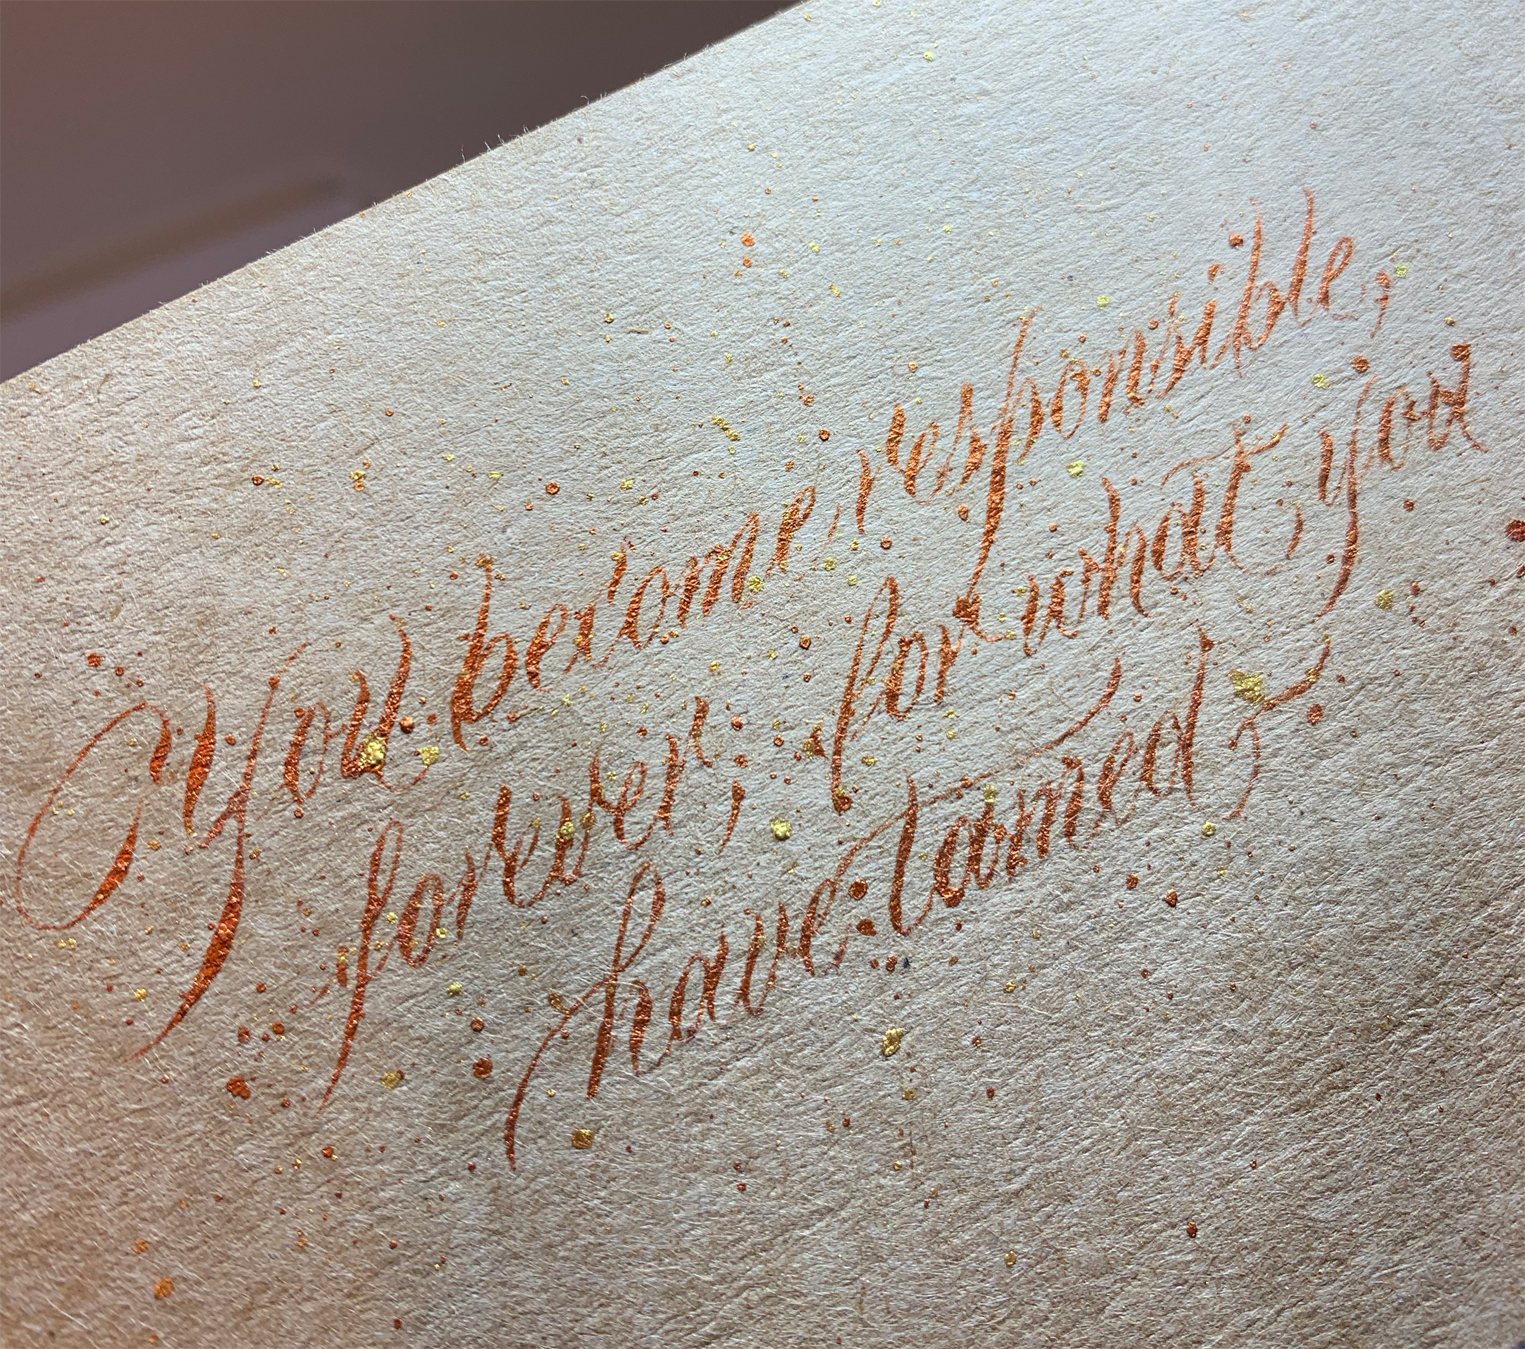 You become responsible,
forever, for what you
have tamed